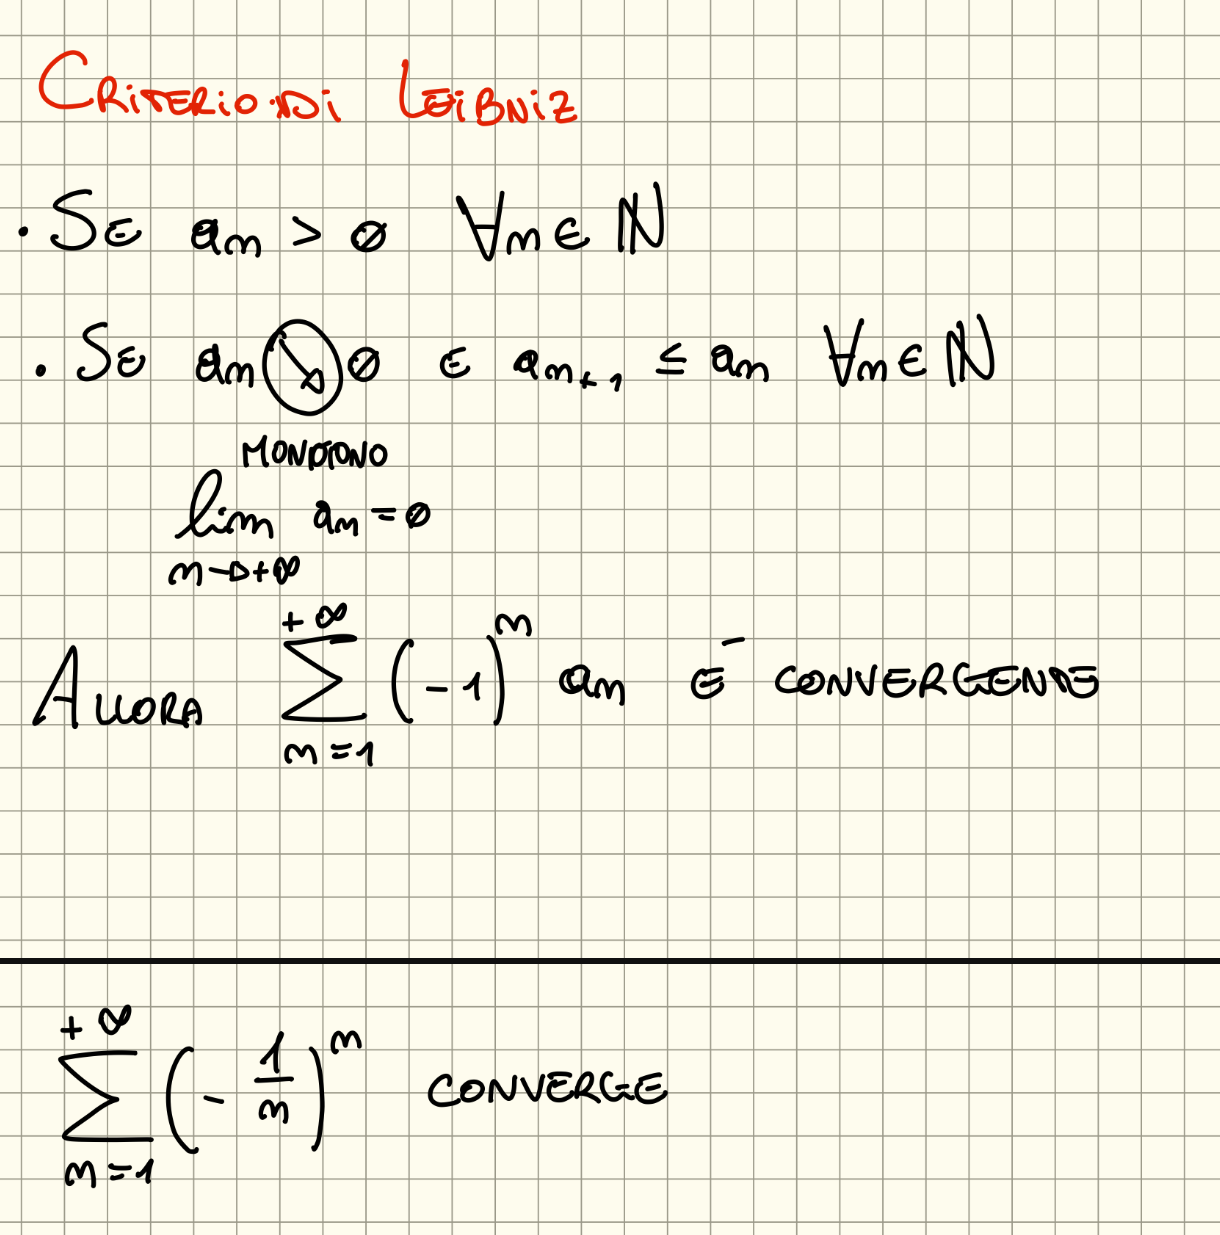 CRITERIO DI LEIBNIZ
. SE an > 0 ∀n ∈ ℕ
. SE an ↘ 0 E an+1 ≤ an ∀n ∈ ℕ
MONOTONO
lim an = 0
n→+∞
+∞
ALLORA Σ (-1)^n an E- CONVERGENTE
n=1
+∞
Σ (- 1/n)^n CONVERGE
n=1